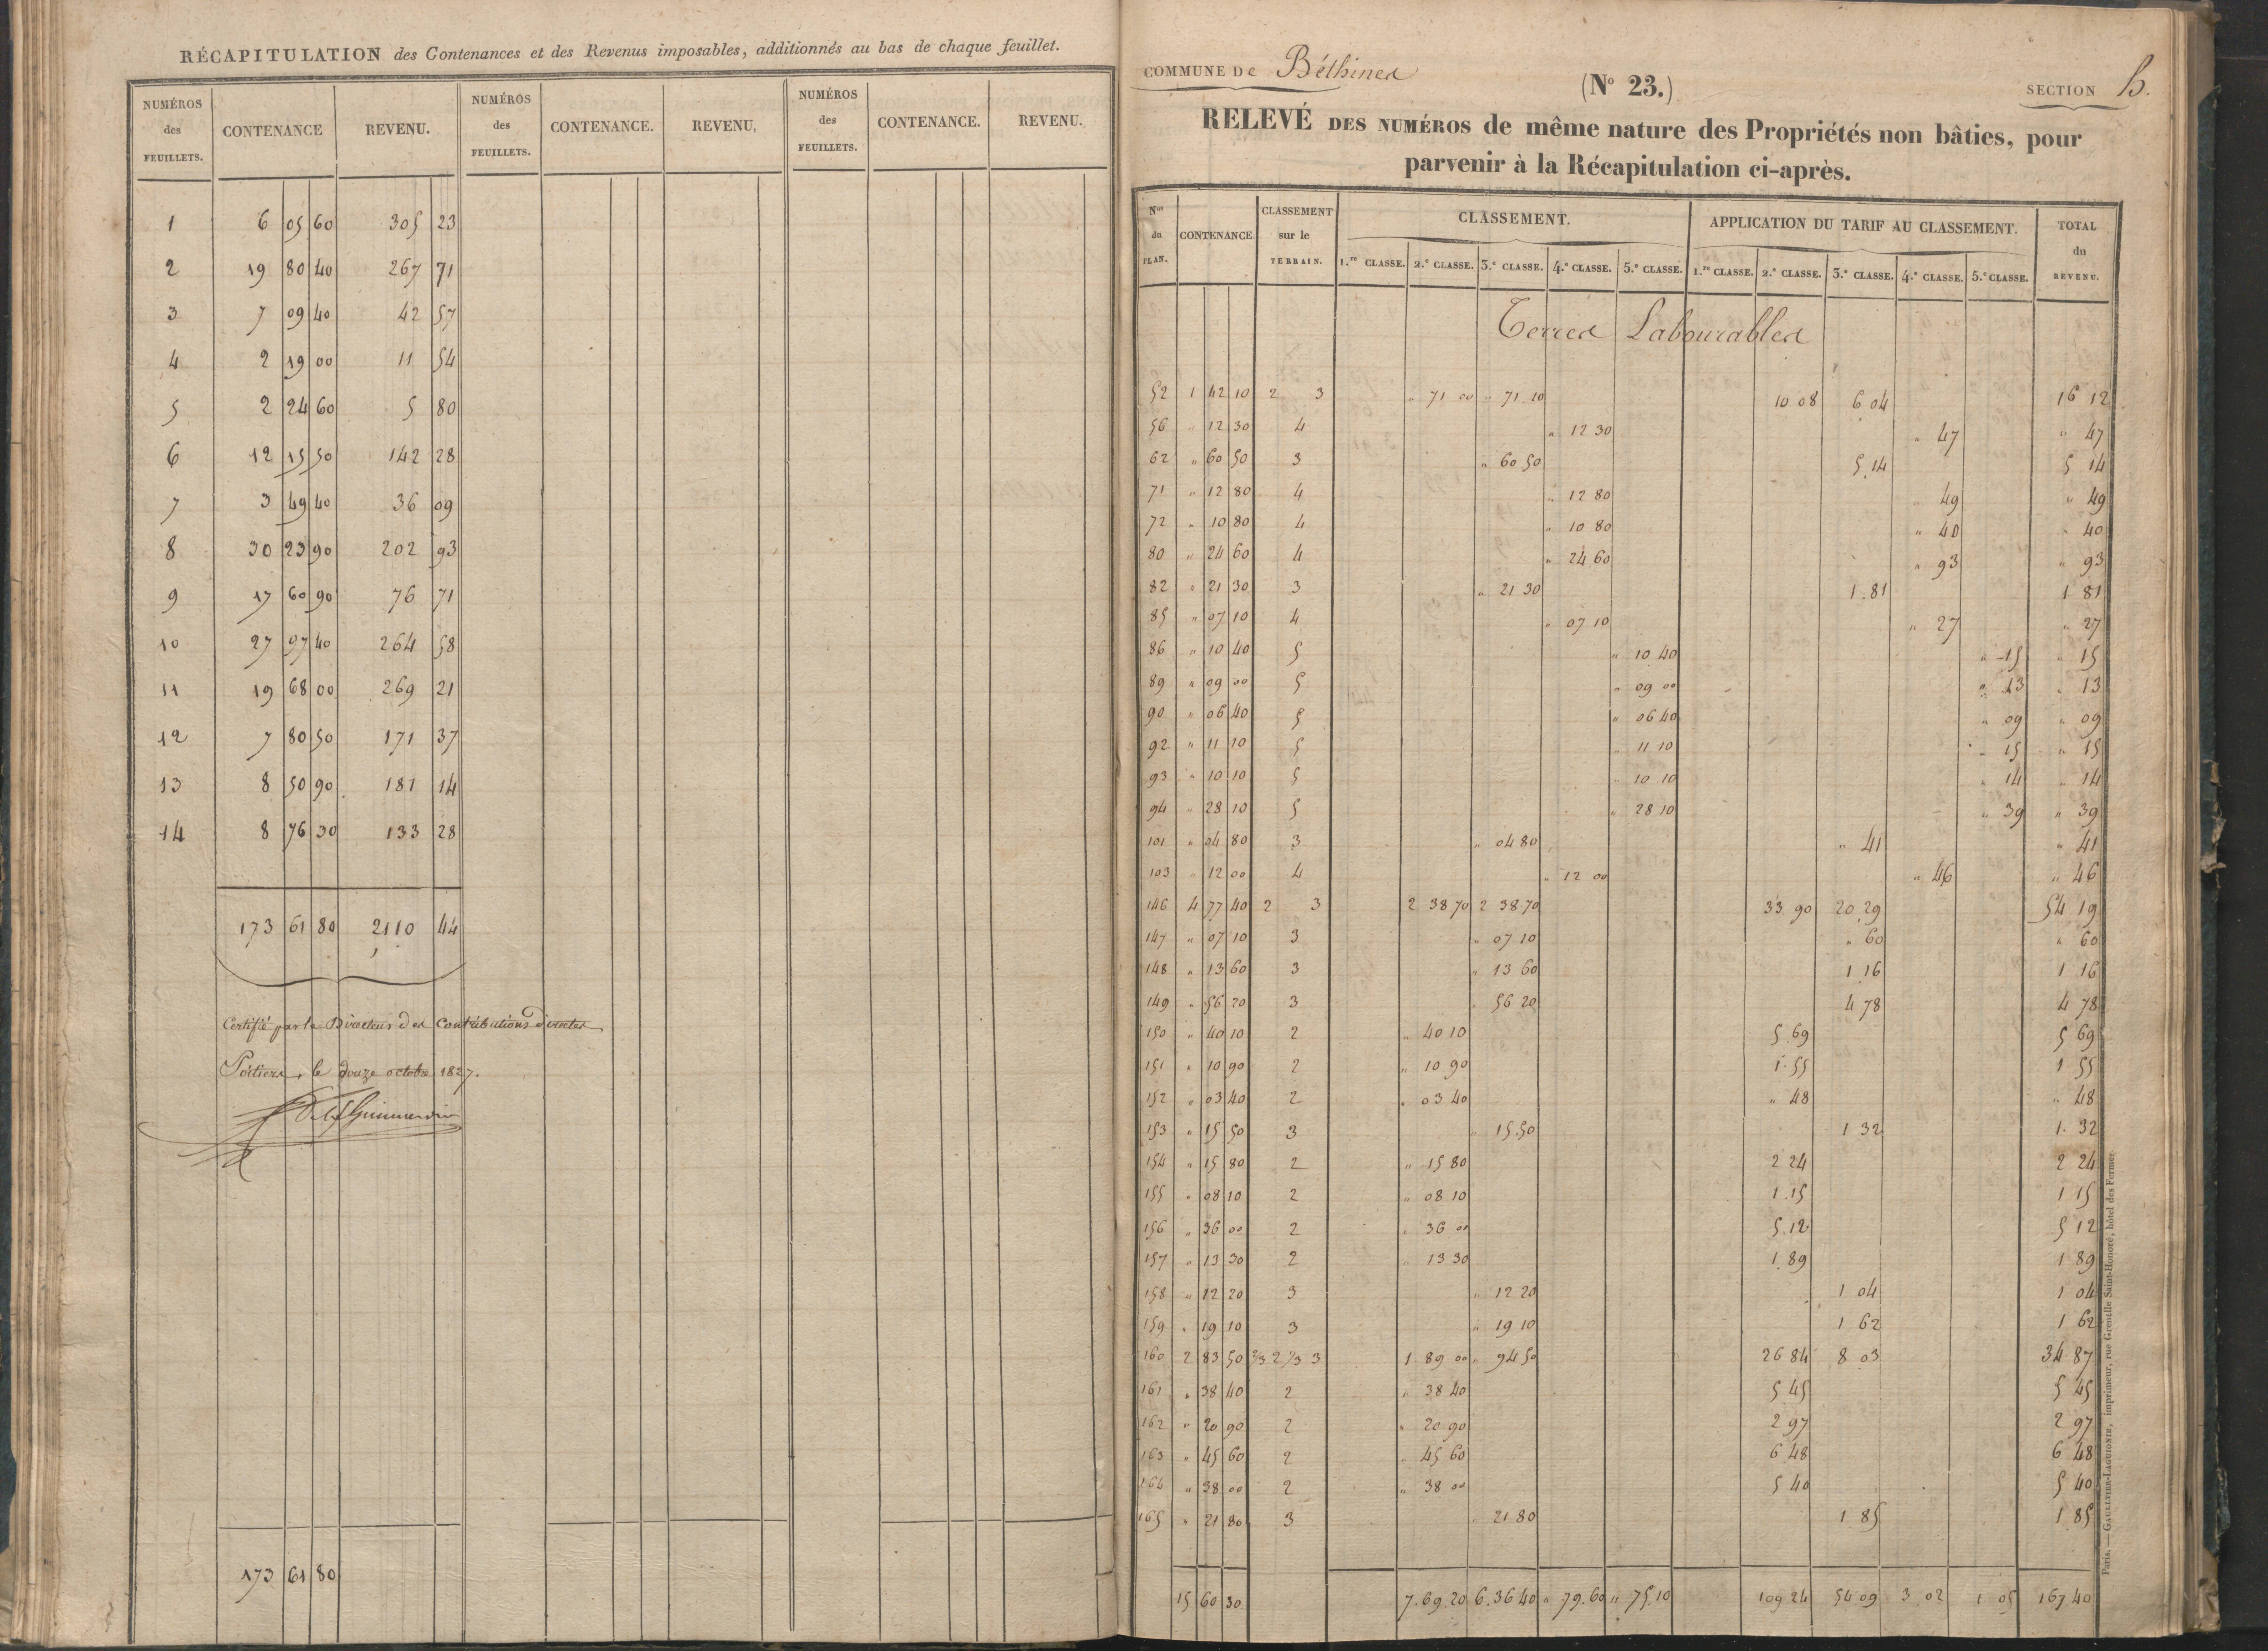 RÉCAPITULATION des Contenances et des Revenus imposables, additionnés au bas de chaque feuillet.
NUMÉROS des FEUILLETS. CONTENANCE REVENU. NUMÉROS des FEUILLETS. CONTENANCE. REVENU, NUMÉROS des FEUILLETS. CONTENANCE. REVENU.
1 6 05 60 305 23
2 19 80 40 267 71
3 7 09 40 42 57
4 2 19 00 11 54
5 2 24 60 5 80
6 12 15 50 142 28
7 3 49 40 36 09
8 30 23 90 202 93
9 17 60 90 76 71
10 27 97 40 264 58
11 19 68 00 269 21
12 7 80 50 171 37
13 8 50 90 181 14
14 8 76 30 133 28
173 61 80 2110 44
Certifié par le Directeur des Contributions directes
Poitiers, le douze octobre 1827.
173 61 80
COMMUNE De Béthines
(No 23.)
SECTION B.
RELEVÉ DES NUMÉROS de même nature des Propriétés non bâties, pour
parvenir à la Récapitulation ci-après.
Nos du PLAN. CONTENANCE. CLASSEMENT sur le TERRAIN. CLASSEMENT. APPLICATION DU TARIF AU CLASSEMENT. TOTAL du REVENU.
1.re CLASSE. 2.e CLASSE. 3.e CLASSE. 4.e CLASSE. 5.e CLASSE. 1.re CLASSE. 2.e CLASSE. 3.e CLASSE. 4.e CLASSE. 5.e CLASSE.
Terres Labourables
52 1 42 10 2 3 " 71 00 " 71 10 10 08 6 04 16 12
56 " 12 30 4 " 12 30 " 47 " 47
62 " 60 50 3 " 60 50 5 14 5 14
71 " 12 80 4 " 12 80 " 49 " 49
72 " 10 80 4 " 10 80 " 40 " 40
80 " 24 60 4 " 24 60 " 93 " 93
82 " 21 30 3 " 21 30 1.81 1 81
85 " 07 10 4 " 07 10 " 27 " 27
86 " 10 40 5 " 10 40 " 15 " 15
89 " 09 00 5 " 09 00 " 13 " 13
90 " 06 40 5 " 06 40 " 09 " 09
92 " 11 10 5 " 11 10 " 15 " 15
93 " 10 10 5 " 10 10 " 14 " 14
94 " 28 10 5 " 28 10 " 39 " 39
101 " 04 80 3 " 04 80 " 41 " 41
103 " 12 00 4 " 12 00 " 46 " 46
146 4 77 40 2 3 2 38 70 2 38 70 33 90 20 29 54 19
147 " 07 10 3 " 07 10 " 60 " 60
148 " 13 60 3 " 13 60 1 16 1 16
149 " 56 20 3 " 56 20 4 78 4 78
150 " 40 10 2 " 40 10 5 69 5 69
151 " 10 90 2 " 10 90 1.55 1 55
152 " 03 40 2 " 03 40 " 48 " 48
153 " 15 50 3 " 15.50 1 32 1. 32
154 " 15 80 2 " 15 80 2 24 2 24
155 " 08 10 2 " 08 10 1.15 1 15
156 " 36 00 2 " 36 00 5.12 5 12
157 " 13 30 2 " 13 30 1.89 1 89
158 " 12 20 3 " 12 20 1 04 1 04
159 " 19 10 3 " 19 10 1 62 1 62
160 2 83 50 2/3 2 1/3 3 1.89 00 " 94 50 26 84 8 03 34 87
161 " 38 40 2 " 38 40 5 45 5 45
162 " 20 90 2 " 20 90 2 97 2 97
163 " 45 60 2 " 45 60 6 48 6 48
164 " 38 00 2 " 38 00 5 40 5 40
165 " 21 80 3 " 21 80 1 85 1 85
15 60 30 7.69.20 6.36 40 " 79.60 " 75.10 109 24 54 09 3 02 1 05 167 40
Paris. — GAULTIER-LAGUIONIE, imprimeur, rue Grenelle Saint-Honoré, hôtel des Fermes.